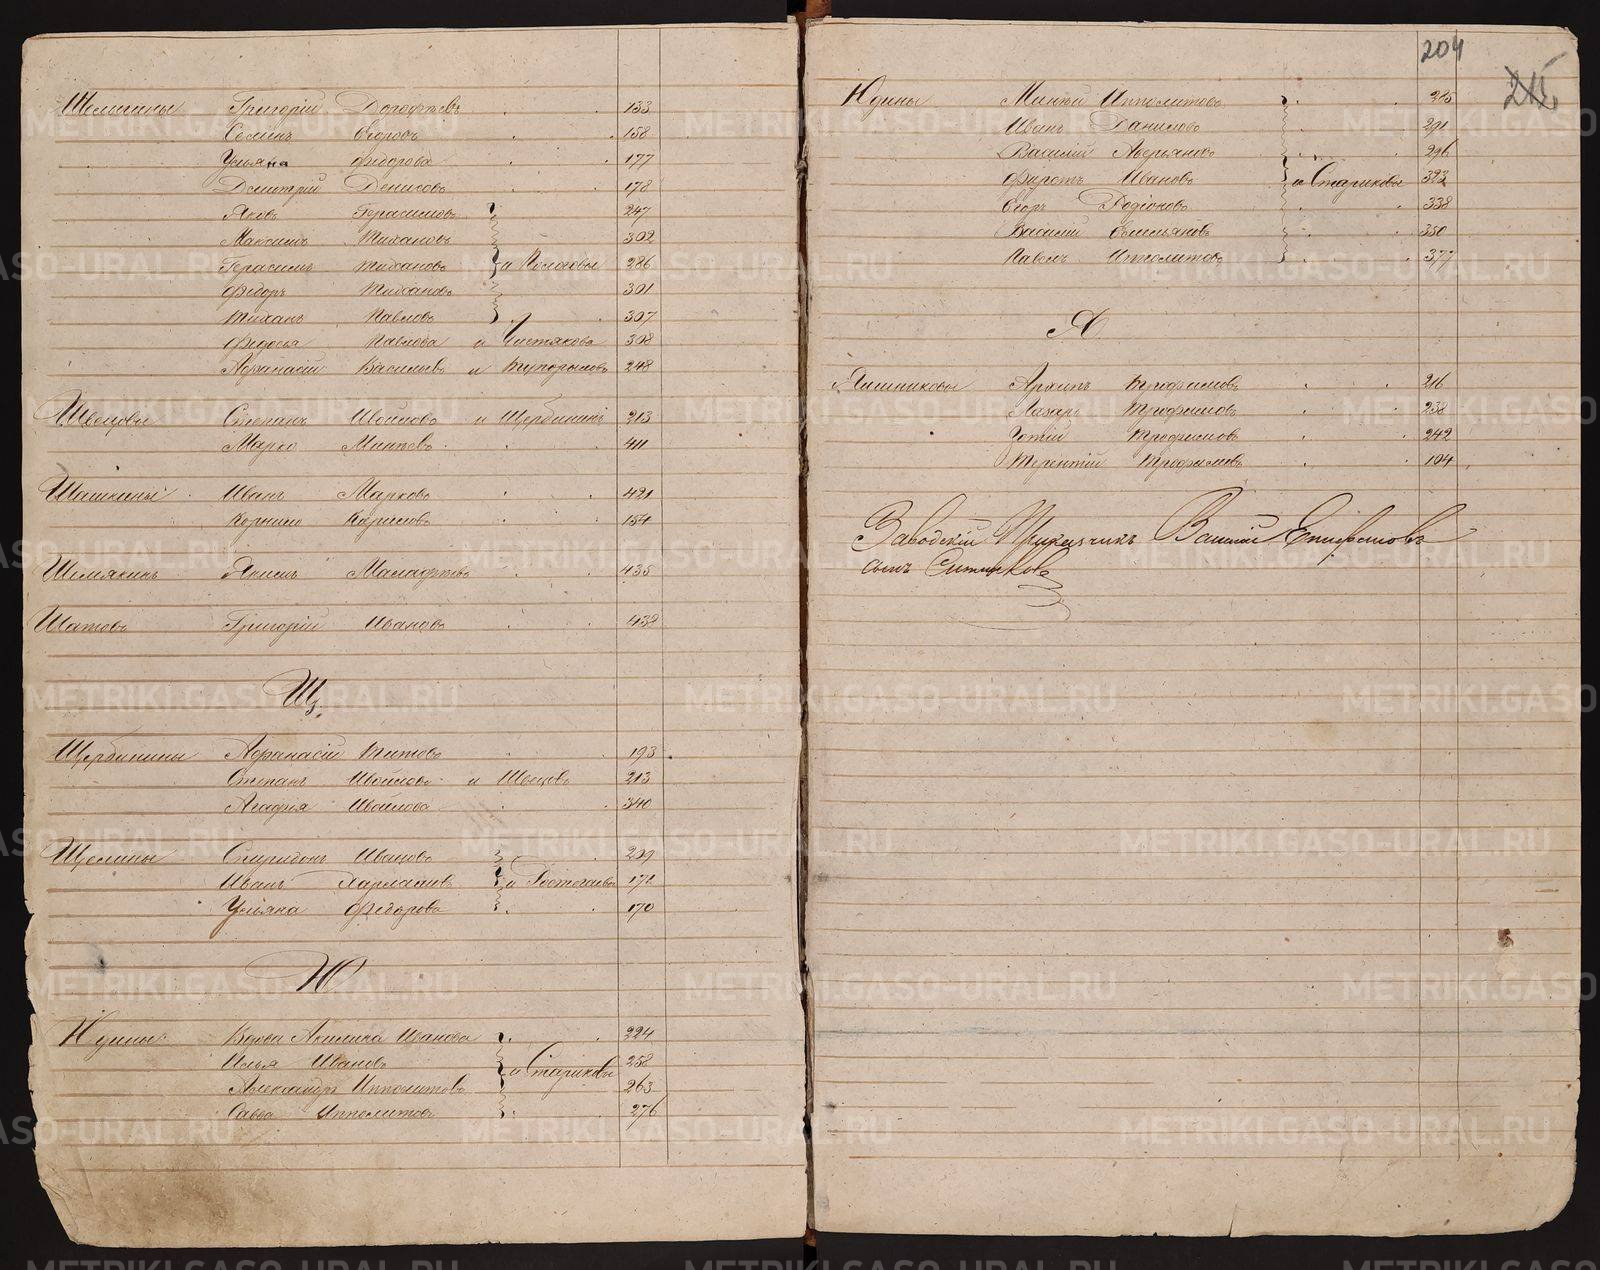 Шелегины Григорій Дорофѣевъ 133
Семенъ Ѳедоровъ 158
Ульяна Ѳедорова 177
Дмитрій Денисовъ 178
Яковъ Герасимовъ 247
Максимъ Тихановъ 302
Герасимъ Тихановъ 286
Ѳедоръ Тихановъ 301
Тиханъ Павловъ 307
Ѳедосья Павлова и Чистякова 308
Афанасій Васильевъ и 248
Швецовы Степанъ Ивойловъ и Щербининъ 213
Марко Минѣевъ 411
Шашкины Иванъ Марковъ 421
Корнило Кариловъ 154
Шемякинъ Якимъ Малафѣевъ 435
Шатовъ Григорій Ивановъ 432
Щ.
Щербинины Афанасій Титовъ 193
Степанъ Ивойловъ и Швецовъ 213
Агафія Ивойлова 340
Щелины Спиридонъ Ивановъ 209
Иванъ Харламовъ 172
Ульяна Ѳедорова 170
Ю
Юдины Вдова Акилина Иванова 224
Илья Ивановъ 258
и Стариковы
Александръ Ипполитовъ 263
Савва Ипполитовъ 276
204
Юдины Минѣй Ипполитовъ 275
Иванъ Даниловъ 291
Василій Аверьяновъ 296
Ивановъ и Стариковы 323
Егоръ Родіоновъ 338
Василій Емельяновъ 350
Павелъ Ипполитовъ 377
Я.
Яшниковы Архипъ Трофимовъ 216
Лазарь Трофимовъ 238
Зотій Трофимовъ 242
Терентій Трофимовъ 104
Заводскій Прикащикъ Василій Епифановъ
сынъ Ситниковъ
METRIKI.GASO-URAL.RU